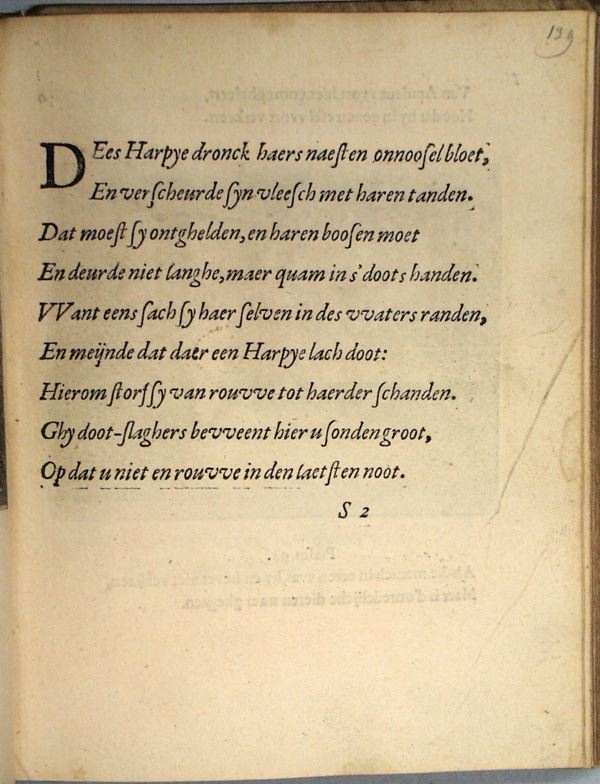 139
DEes Harpye dronck haers naeſten onnooſel bloet,
En verſcheurde ſyn vleeſch met haren tanden.
Dat moeſt ſy ontghelden, en haren booſen moet
En deurde niet langhe, maer quam in s'doots handen.
VVant eens ſach ſy haer ſelven in des vvaters randen,
En meijnde dat daer een Harpye lach doot:
Hierom ſtorf ſy van rouvve tot haerder ſchanden.
Ghy doot-ſlaghers bevveent hier u ſonden groot,
Op dat u niet en rouvve in den laetſten noot.
S 2